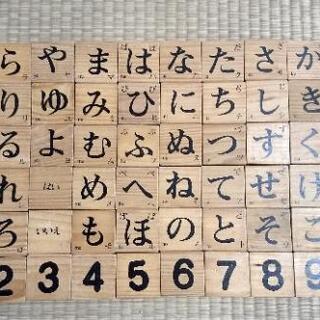 ら や ま は な た さ か
り ゆ み ひ に ち し き
る よ む ふ ぬ つ す く
れ はい め へ ね て せ け
ろ いいえ も ほ の と そ こ
2 3 4 5 6 7 8 9